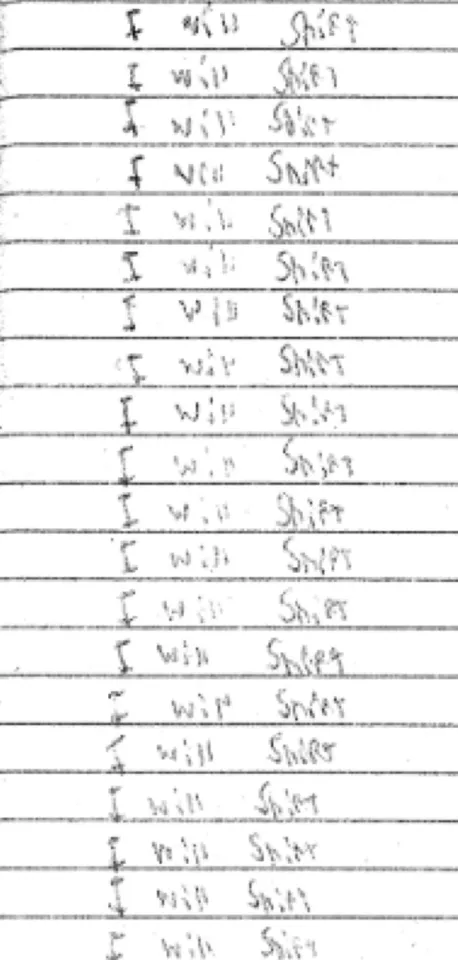 I will Shift
I will Shift
I will Shift
I will Shift
I will Shift
I will Shift
I will Shift
I will Shift
I will Shift
I will Shift
I will Shift
I will Shift
I will Shift
I will Shift
I will Shift
I will Shift
I will Shift
I will Shift
I will Shift
I will Shift